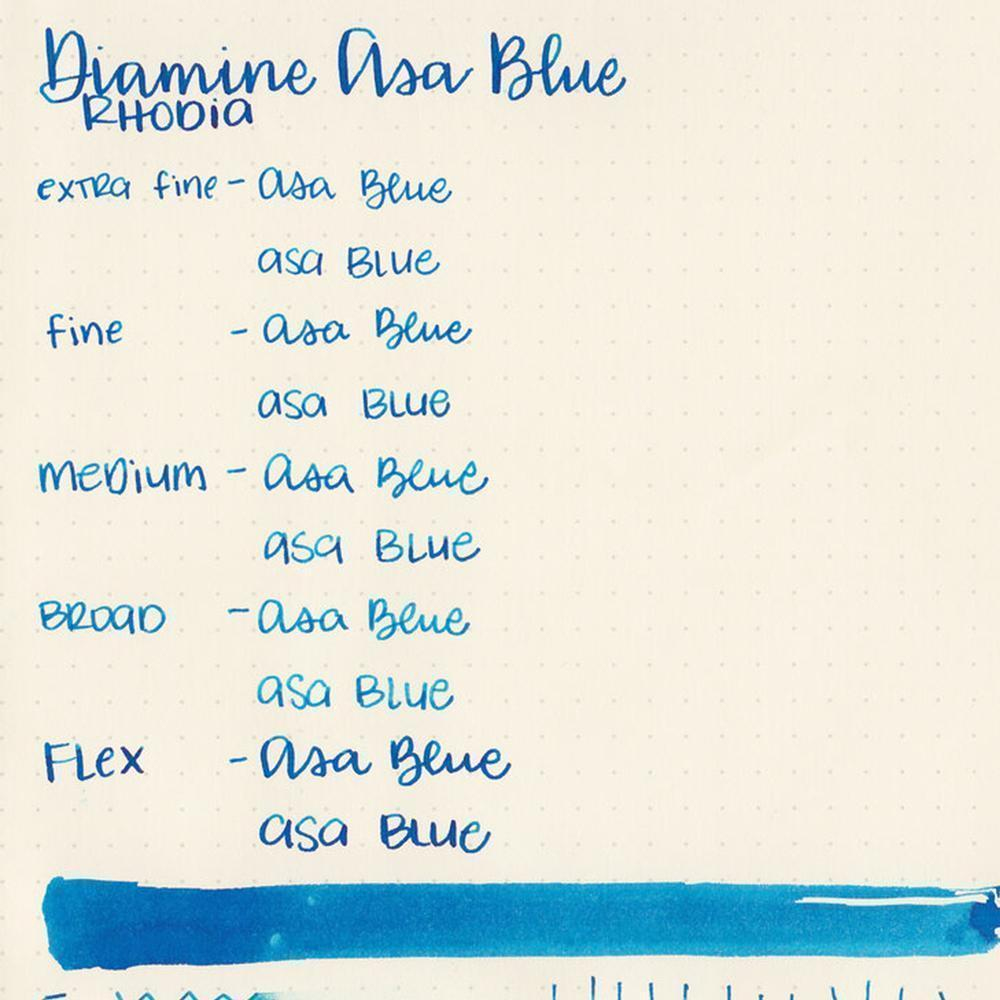 Diamine Asa Blue
RHODia
exTRa fine - asa Blue
asa BLUe
fine - asa Blue
asa BLUe
meDium - asa Blue
asa BLUe
BROaD - asa Blue
asa BLUe
FLex - asa Blue
asa BLUe